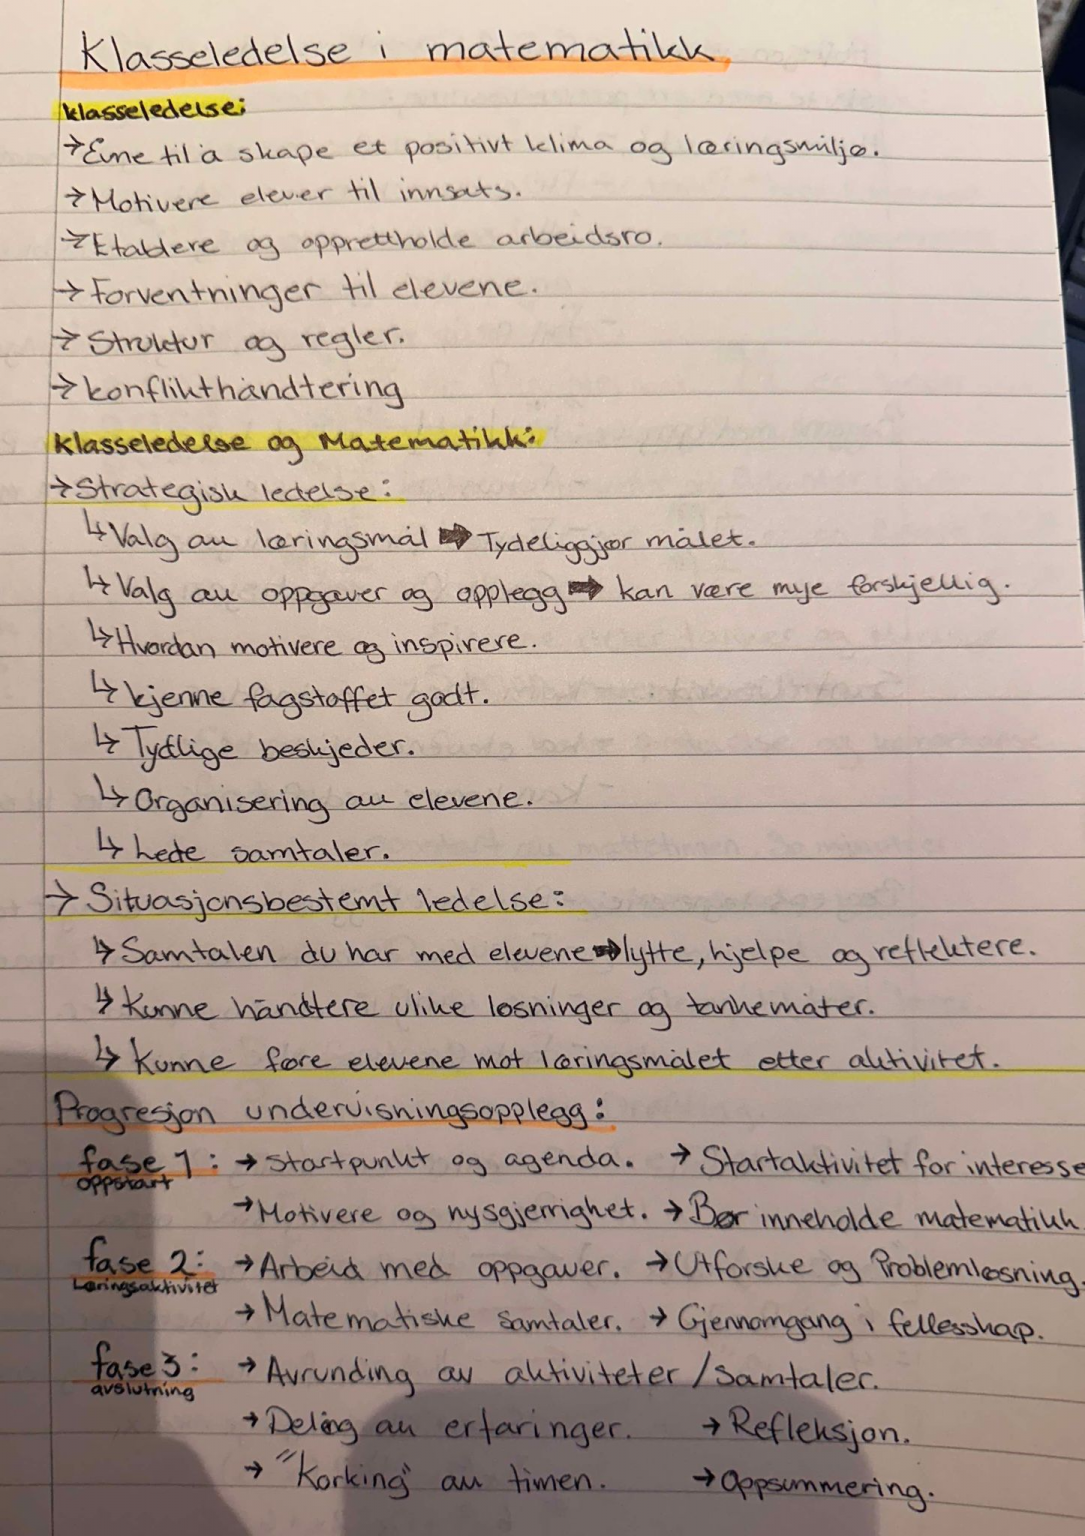 Klasseledelse i matematikk
Klasseledelse:
→ Evne til å skape et positivt klima og læringsmiljø.
→ Motivere elever til innsats.
→ Etablere og opprettholde arbeidsro.
→ Forventninger til elevene.
→ Struktur og regler.
→ konflikthåndtering
Klasseledelse og Matematikk:
→ Strategisk ledelse:
↳ Valg av læringsmål ➡ Tydeliggjør målet.
↳ Valg av oppgaver og opplegg ➡ kan være mye forskjellig.
↳ Hvordan motivere og inspirere.
↳ kjenne fagstoffet godt.
↳ Tydlige beskjeder.
↳ Organisering av elevene.
↳ Lede samtaler.
→ Situasjonsbestemt ledelse:
↳ Samtalen du har med elevene ➡ lytte, hjelpe og reflektere.
↳ Kunne håndtere ulike løsninger og tankemåter.
↳ Kunne føre elevene mot læringsmålet etter aktivitet.
Progresjon undervisningsopplegg:
fase 1: → Startpunkt og agenda. → Startaktivitet for interesse
oppstart
→ Motivere og nysgjerrighet. → Bør inneholde matematikk.
fase 2: → Arbeid med oppgaver. → Utforske og Problemløsning.
Læringsaktivitet
→ Matematiske samtaler. → Gjennomgang i fellesskap.
fase 3: → Avrunding av aktiviteter / Samtaler.
avslutning
→ Deling av erfaringer. → Refleksjon.
→ "Korking" av timen. → Oppsummering.